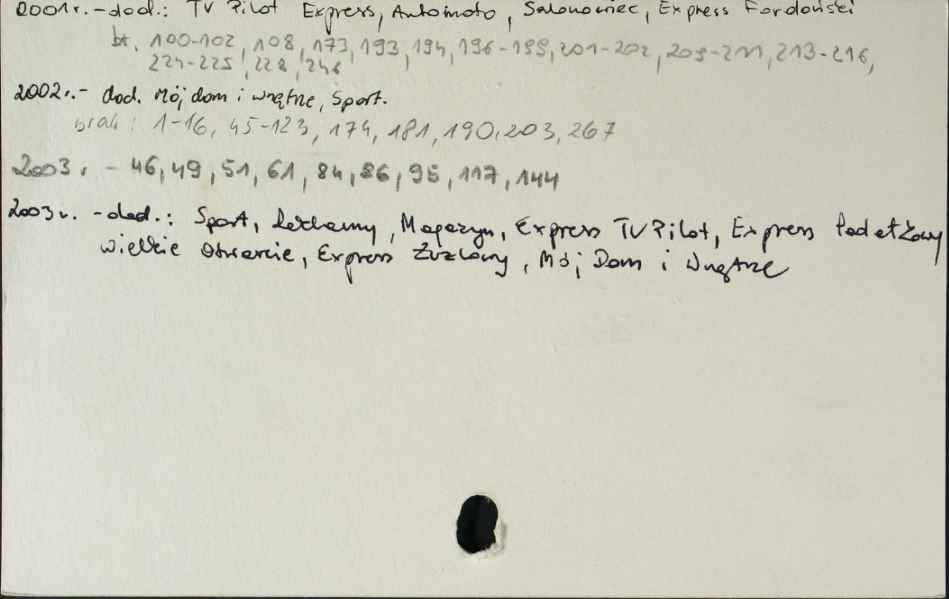 2001r.-dod.: TV Pilot Express, Autoimoto, Salonowiec, Express Fordoński
br. 100-102, 108, 173, 193, 194, 196-199, 201-202, 209-211, 213-216,
224-225, 228, 246
2002r.- dod. Mój dom i wnętrze, Sport.
brak: 1-16, 45-123, 174, 181, 190, 203, 267
2003. - 46, 49, 51, 61, 84, 86, 95, 117, 144
2003r. -dod.: Sport, Reklamy, Magazyn, Express TV Pilot, Express
wielkie otwarcie, Express Żużlowy, Mój Dom i Wnętrze